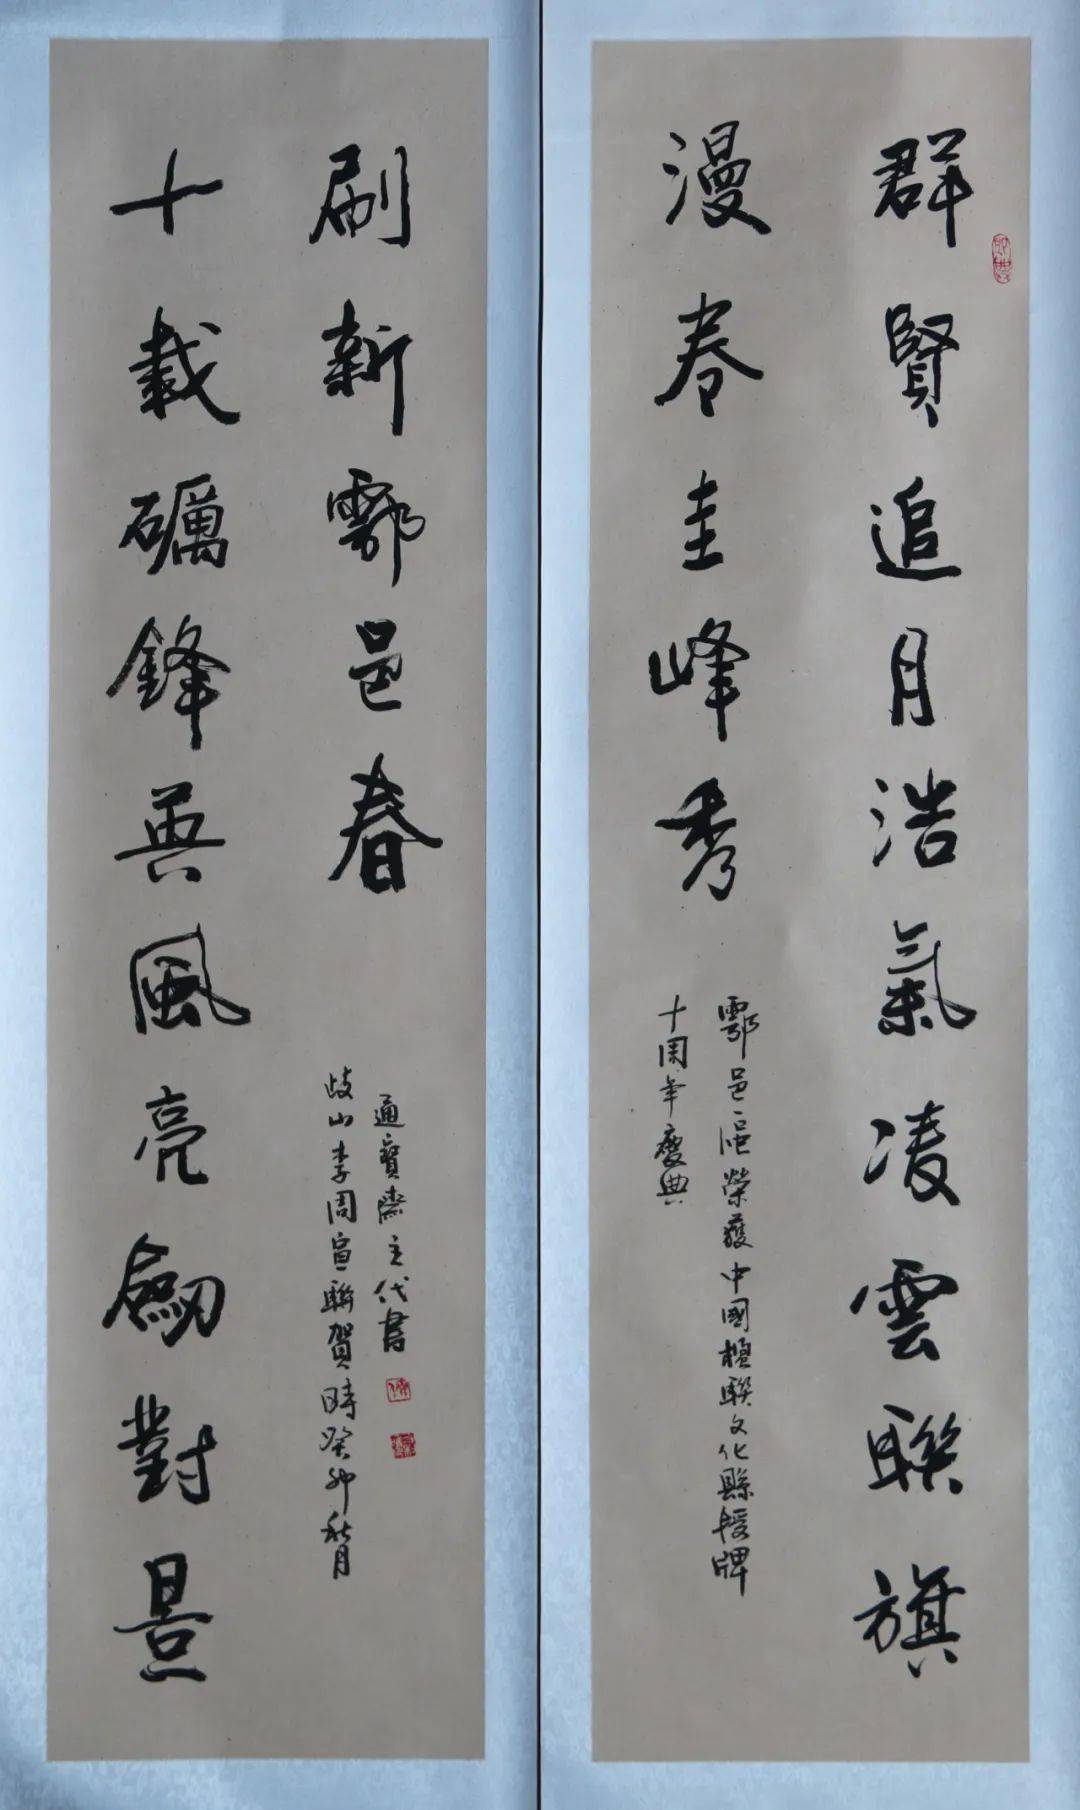 群賢追月浩氣凌雲聯旗
漫卷圭峰秀
鄠邑區榮獲中國楹聯文化縣授牌
十周年慶典
十載礪鋒英風亮劒對景
刷新鄠邑春
歧山李周宣聯賀時癸卯秋月
通寶齋主代書